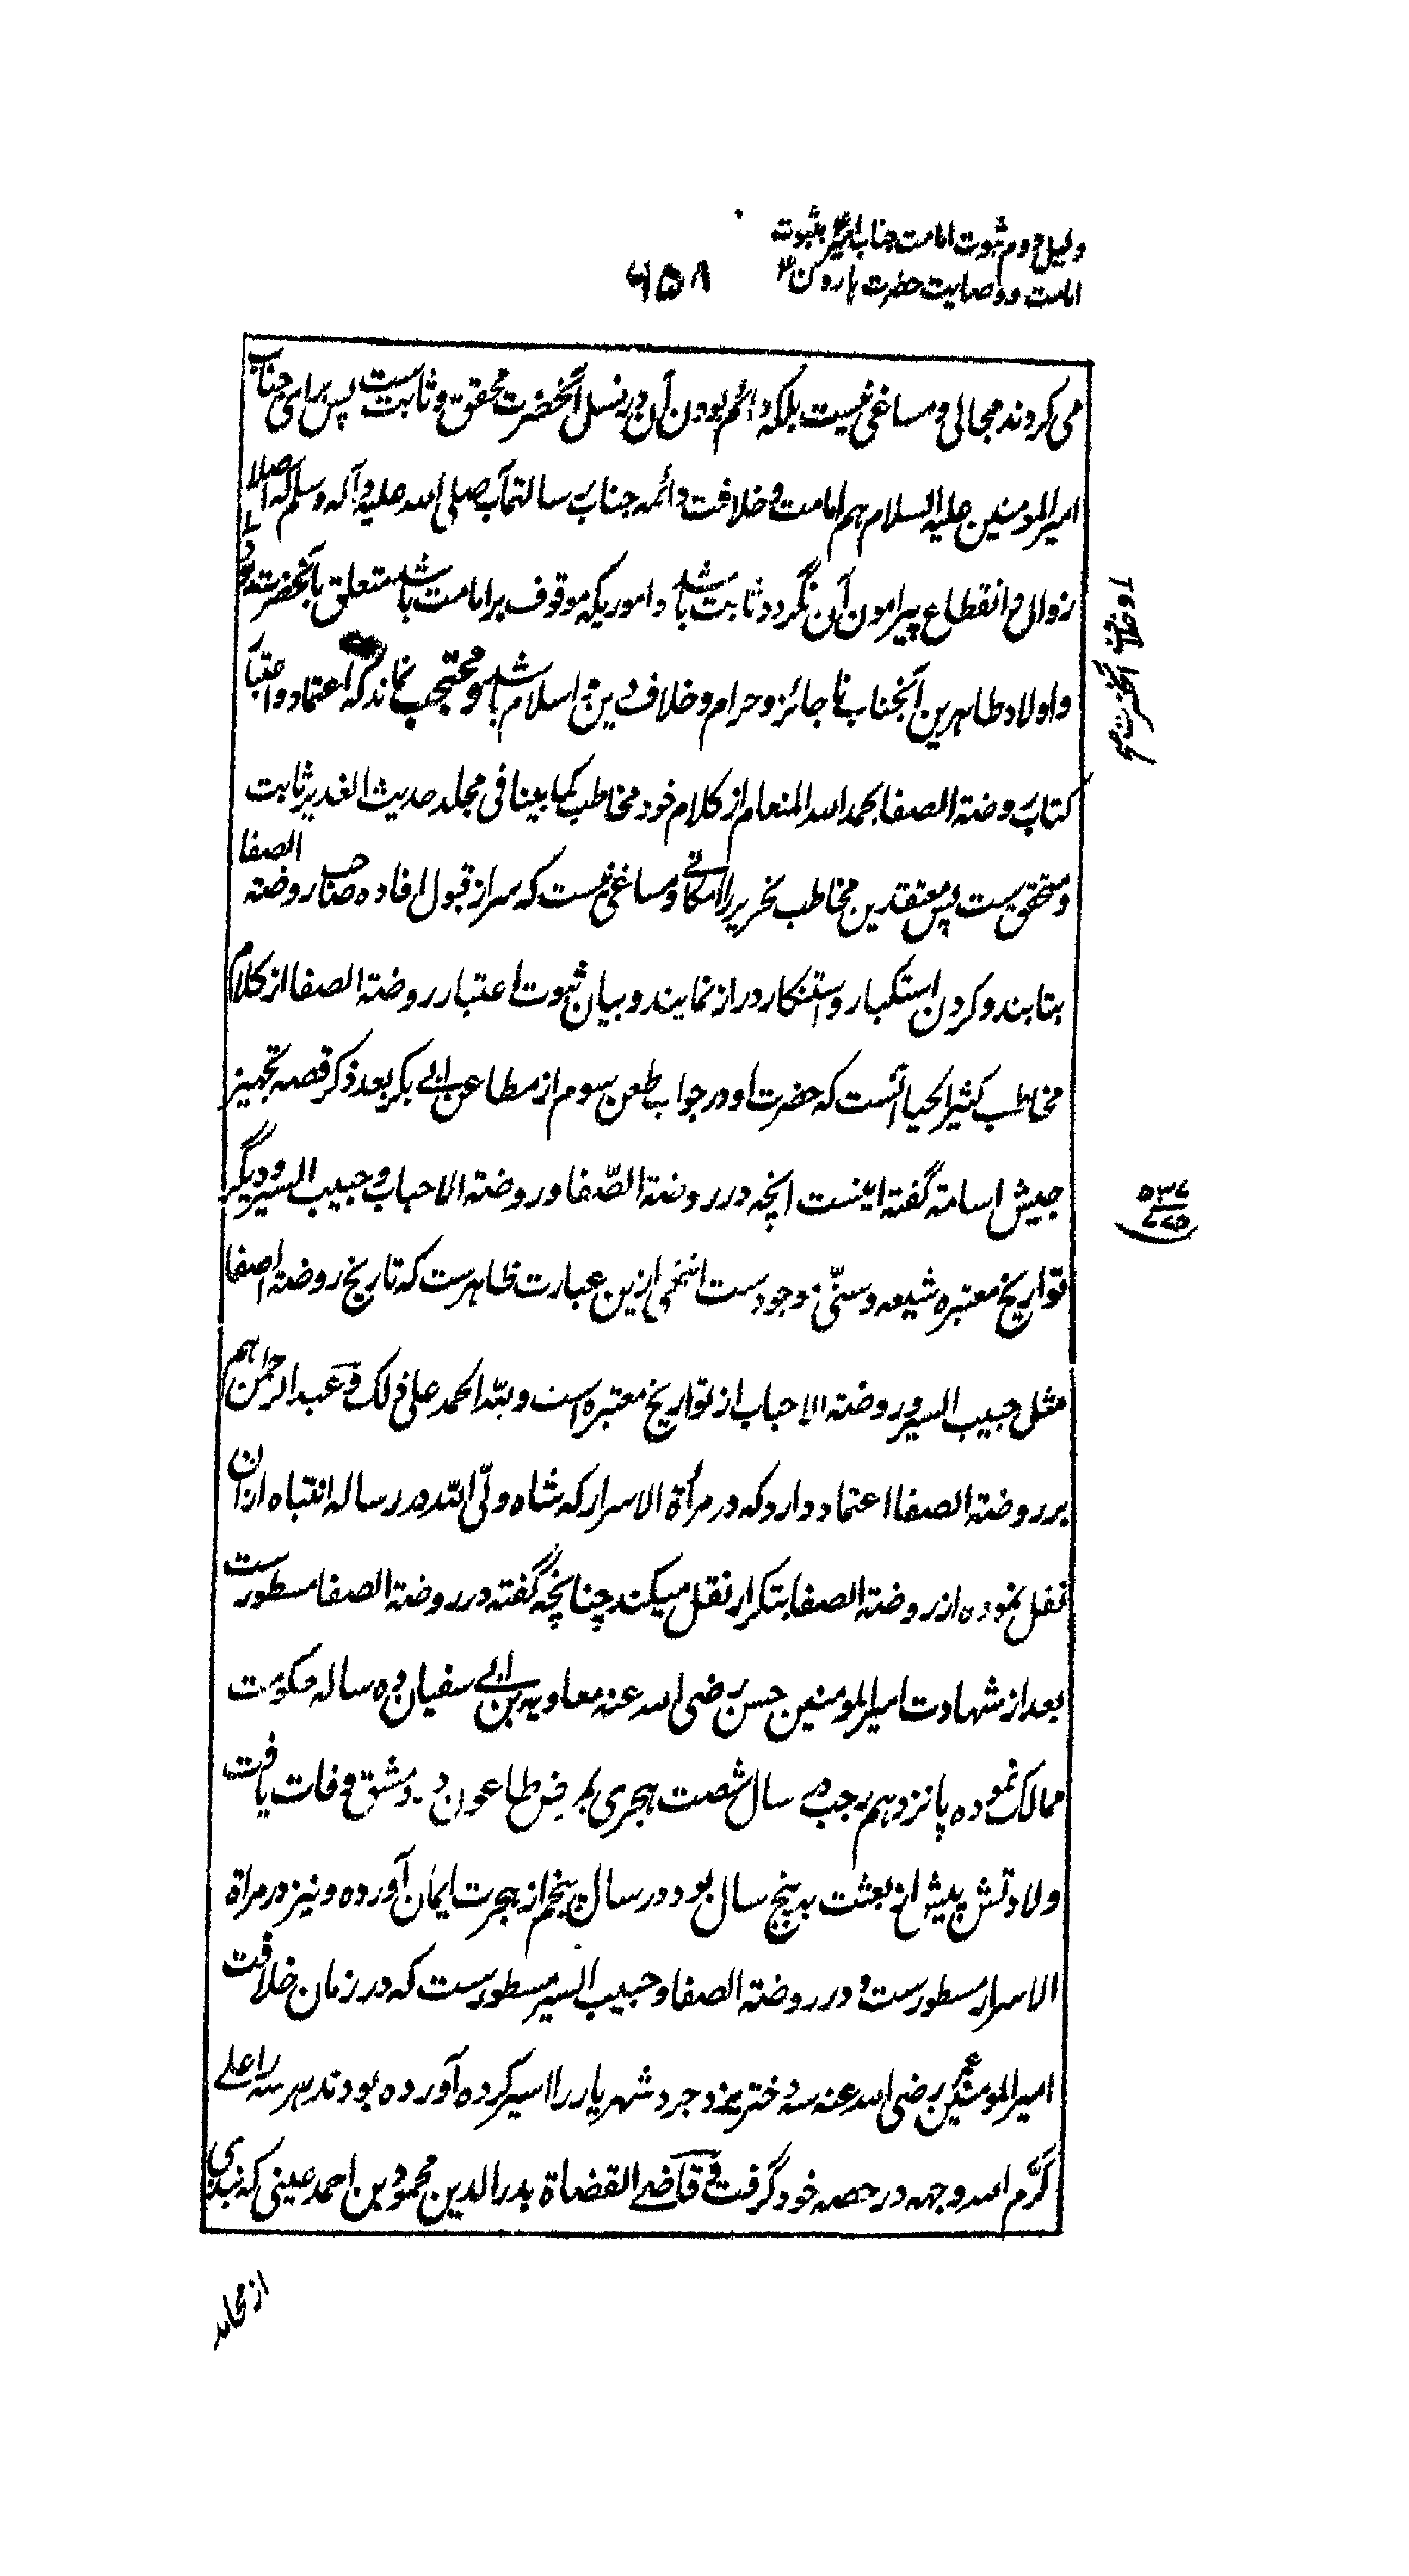 دلیل دوم ثبوت امامت جناب امیر بثبوت
امامت و وصایت حضرت هارون
۶۵۸
می کردند مجالی و مساغی نیست بلکه دائم بودن آن در نسل آنحضرت محقق و ثابت ست پس برای جناب
امیرالمومنین علیه السلام هم امامت و خلافت دائمه جناب رسالتمآب صلی الله علیه و آله وسلم که اصلا
زوال و انقطاع پیرامون آن نگردد ثابت باشد و اموریکه موقوف بر امامت باشد متعلق بآنحضرت
و اولاد طاهرین آنجناب نا جائز و حرام و خلاف دین اسلام باشد و محتجب نماند که اعتماد و اعتبار
کتاب روضة الصفا بحمد الله المنعام از کلام خود مخاطب کما بینا فی مجلد حدیث الغدیر ثابت
و متحقق ست پس معتقدین مخاطب نحریر را امکانی و مساغی نیست که سر از قبول افاده صاحب روضة الصفا
بتابند و گردن استکبار و استنکار دراز نمایند و بیان ثبوت اعتبار روضة الصفا از کلام
مخاطب کثیر الحیا آنست که حضرت او در جواب طعن سوم از مطاعن ابی بکر بعد ذکر قصه تجهیز
جیش اسامه گفته اینست انچه در روضة الصّفا و روضة الاحباب و حبیب السیر و دیگر
تواریخ معتبره شیعه و سنّی موجودست انتهی ازین عبارت ظاهرست که تاریخ روضة الصفا
مثل حبیب السیر و روضة الاحباب از تواریخ معتبره است و لله الحمد علی ذلک و عبد الرحمن هم
بر روضة الصفا اعتماد دارد که در مرأة الاسرار که شاه ولّی الله در رساله انتباه ازان
نقل نموده از روضة الصفا بتکرار نقل میکند چنانچه گفته در روضة الصفا مسطورست
بعد از شهادت امیرالمومنین حسن رضی الله عنه معاویه بن ابی سفیان ده ساله حکومت
ممالک نموده پانزدهم رجب سال شصت هجری بمرض طاعون در دمشق وفات یافت
ولادتش پیش از بعثت به پنج سال بود در سال پنجم از هجرت ایمان آورده و نیز در مراة
الاسرار مسطورست و در روضة الصفا و حبیب السیر مسطورست که در زمان خلافت
امیرالمومنین عمر رضی الله عنه سه دختر یزدجرد شهریار را اسیر کرده آورده بودند هر سه را علی
کرّم الله وجهه در حصه خود گرفت و قاضی القضاة بدر الدین محمود بن احمد عینی که نبذی
و خلافت آنحضرت
۵۳۷
۷۷۵
از محامد